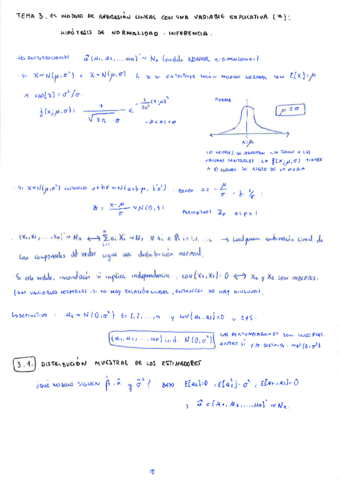 TEMA 3. EL MODELO DE REGRESIÓN LINEAL CON UNA VARIABLE EXPLICATIVA (II):
HIPÓTESIS DE NORMALIDAD - INFERENCIA.
LAS PERTURBACIONES û(u₁, u₂, ..., uₙ)' ~ Nₙ (modelo NORMAL n-DIMENSIONAL)
· Si X~N(μ, σ²) o X~N(μ, σ) X se distribuye según modelo normal con E[X]=μ
y VAR[X]=σ²/σ.
f(x; μ, σ) = 1/√2π σ e^{-1/2σ²(x-μ)²} -∞<x<∞
FORMA
μ ± σ
μ
VALORES CENTRALES. LA f(x; μ, σ) TIENDE
A 0 CUANDO SE ALEJA DE LA MEDIA
· Si X~N(μ, σ²) entonces a+bX ~ N(a+bμ, b²σ²). DONDE a = -μ/σ · b = 1/σ
Z = X-μ/σ ~ N(0,1)
PERCENTILES Zₚ 0<p<1
· (X₁, X₂, ..., Xₙ)' ~ Nₙ ⟷ Σ aᵢ Xᵢ ~ N₁ ∀ aᵢ ∈ ℝ i=1, ..., n → cualquier combinación lineal de
las componentes del vector sigue una distribución normal.
· Si este modelo, incorrelación sí implica independencia. cov(X₁, X₂) = 0 ⟷ X₁ y X₂ son indeptes.
(CON VARIABLES NORMALES SI NO HAY RELACIÓN LINEAL, ENTONCES NO HAY NINGUNA).
EN DEFINITIVA: uₜ ~ N(0, σ²) t=1, 2, ..., n y COV[uₜ, uₛ]=0 ∀ t≠s.
(u₁, u₂, ..., uₙ) i.i.d. N(0, σ²)
LAS PERTURBACIONES SON INDEPTES.
ENTRE SÍ Y SE DISTRIB. ~N(0, σ²)
3.1. DISTRIBUCIÓN MUESTRAL DE LOS ESTIMADORES
¿QUÉ MODELO SIGUEN β̂, α̂ y σ̂²? BAJO E[uₜ]=0, E[uₜ²]=σ², E[uₜ, uₛ]=0
y û = (u₁, u₂, ..., uₙ)' ~ Nₙ.